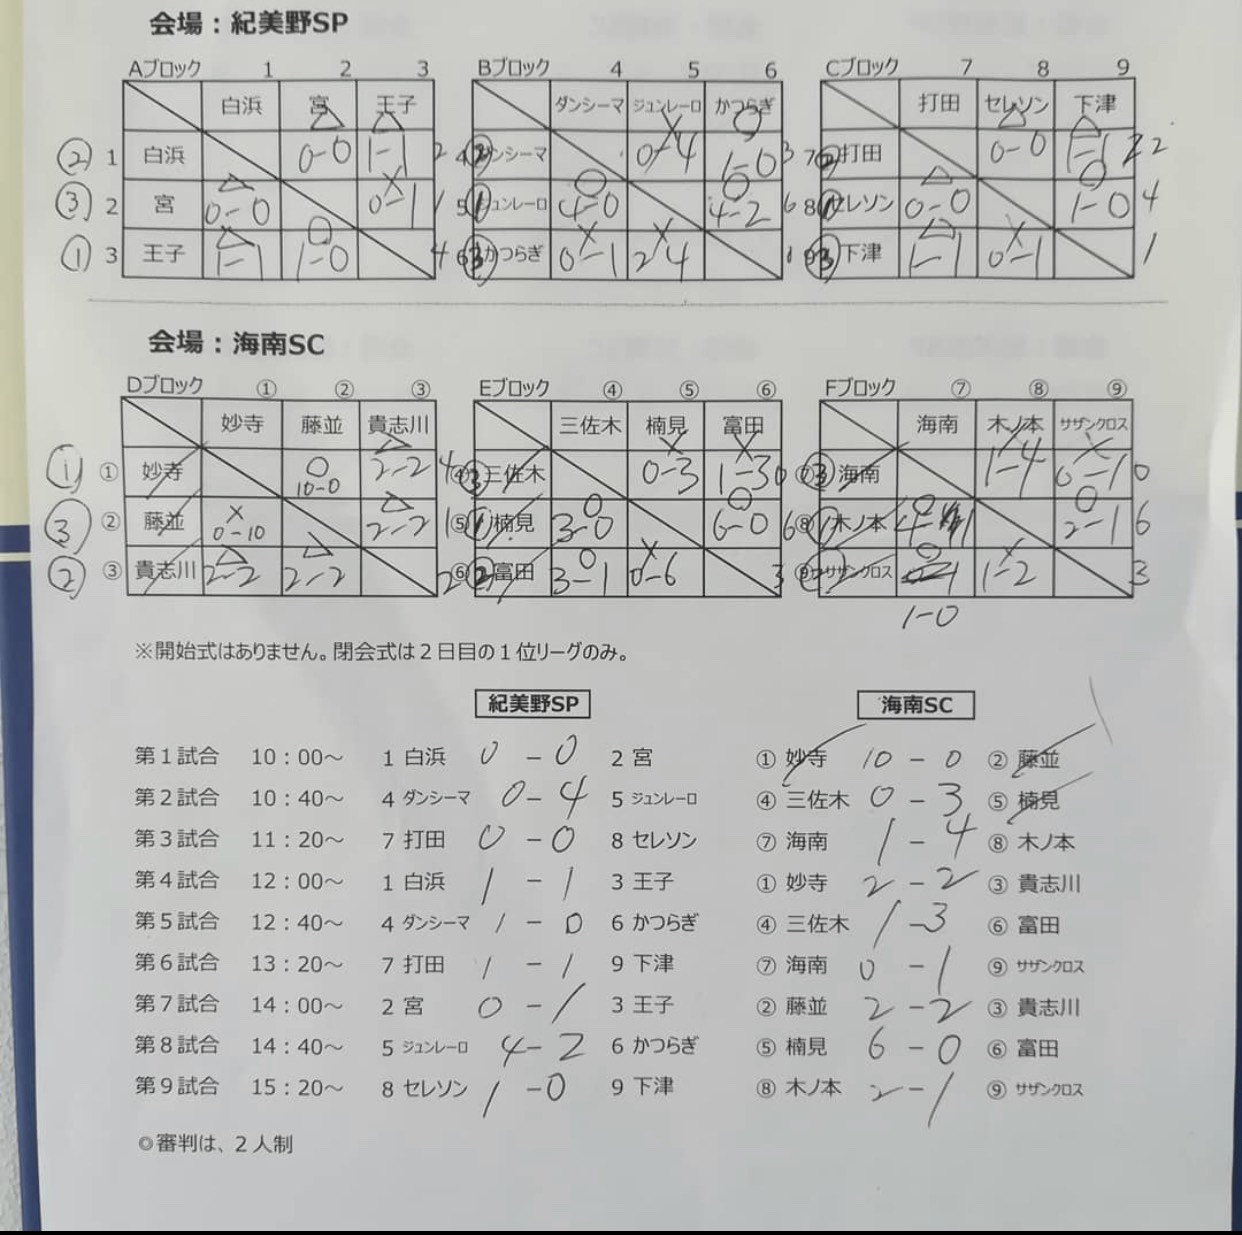 会場：紀美野SP
Aブロック 1 2 3 Bブロック 4 5 6 Cブロック 7 8 9
白浜 宮 王子 ダンシーマ ジュンレーロ かつらぎ 打田 セレソン 下津
② 1 白浜 0-0 1-1 2 4 ② ンシーマ 0-4 1-0 3 7 ② 打田 0-0 1-1 2
③ 2 宮 0-0 0-1 1 5 ① ジュンレーロ 4-0 4-2 6 8 ① セレソン 0-0 1-0 4
① 3 王子 1-1 1-0 4 6 ③ かつらぎ 0-1 2-4 0 9 ③ 下津 1-1 0-1 1
会場：海南SC
Dブロック ① ② ③ Eブロック ④ ⑤ ⑥ Fブロック ⑦ ⑧ ⑨
妙寺 藤並 貴志川 三佐木 楠見 富田 海南 木ノ本 サザンクロス
① ① 妙寺 10-0 2-2 4 ④ ③ 三佐木 0-3 1-3 0 ⑦ ③ 海南 1-4 0-1 0
③ ② 藤並 0-10 2-2 1 ⑤ ① 楠見 3-0 6-0 6 ⑧ ① 木ノ本 4-1 2-1 6
② ③ 貴志川 2-2 2-2 2 ⑥ ② 富田 3-1 0-6 3 ⑨ サザンクロス 1-2 3
1-0
※開始式はありません。閉会式は２日目の１位リーグのみ。
紀美野SP 海南SC
第１試合 10：00～ 1 白浜 0 - 0 2 宮 ① 妙寺 10 - 0 ② 藤並
第２試合 10：40～ 4 ダンシーマ 0 - 4 5 ジュンレーロ ④ 三佐木 0 - 3 ⑤ 楠見
第３試合 11：20～ 7 打田 0 - 0 8 セレソン ⑦ 海南 1 - 4 ⑧ 木ノ本
第４試合 12：00～ 1 白浜 1 - 1 3 王子 ① 妙寺 2 - 2 ③ 貴志川
第５試合 12：40～ 4 ダンシーマ 1 - 0 6 かつらぎ ④ 三佐木 1 - 3 ⑥ 富田
第６試合 13：20～ 7 打田 1 - 1 9 下津 ⑦ 海南 0 - 1 ⑨ サザンクロス
第７試合 14：00～ 2 宮 0 - 1 3 王子 ② 藤並 2 - 2 ③ 貴志川
第８試合 14：40～ 5 ジュンレーロ 4 - 2 6 かつらぎ ⑤ 楠見 6 - 0 ⑥ 富田
第９試合 15：20～ 8 セレソン 1 - 0 9 下津 ⑧ 木ノ本 2 - 1 ⑨ サザンクロス
◎審判は、２人制